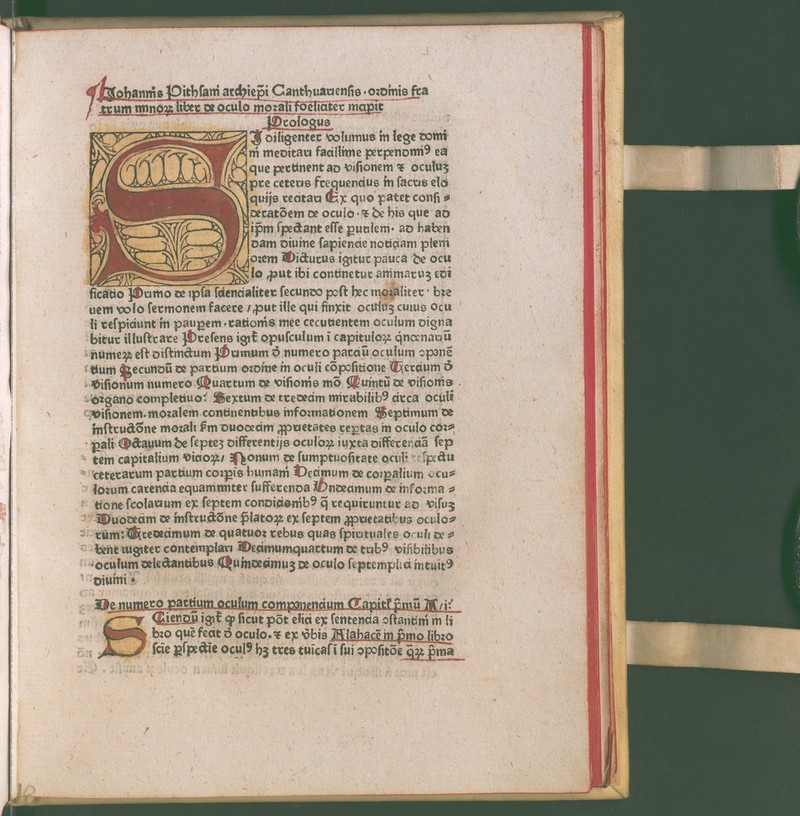 Johannis Pithsani archiep̄i Canthuariensis · ordinis fra
trum minoꝝ liber de oculo morali foeliciter incipit
Prologus
SI diligenter volumus in lege domi
ni meditari facillime perpendimꝰ ea
que pertinent ad visionem ⁊ oculuꝫ
pre ceteris frequencius in sacris elo
quijs recitari Ex quo patet consi⸗
deratōem de oculo · ⁊ de his que ad
ip̄m spectant esse ꝑutilem · ad haben
dam diuine sapiencie noticiam pleni
orem Dicturus igitur pauca de ocu
lo ꝓut ibi continetur animaruꝫ edi
ficatio Primo de ipsa sciencialiter secundo post hec moraliter · bre
uem volo sermonem facere / ꝓut ille qui finxit oculuꝫ cuius ocu
li respiciunt in pauꝑem · rationis mee cecucientem oculum digna
bitur illustrare Presens igit̄ opusculum ī capituloꝝ qͥndenariū
numeꝝ est distinctum Primum ō numero parciū oculum ↄponē
tium Secundū de partium ordine in oculi cōpositione Tercium ō
visionum numero Quartum de visionis mō Quintū de visionis
organo completiuo: Sextum de tredecim mirabilibꝰ circa oculi
visionem · moralem continentibus informationem Septimum de
instructōne morali s̄m duodecim ꝓprietates reꝑtas in oculo cor⸗
ꝑali Octauum de septeꝫ differentijs oculoꝝ iuxta differenciā sep
tem capitalium vicioꝝ / Nonum de sumptuositate oculi respectu
ceterarum partium corꝑis humani Decimum de corꝑalium ocu⸗
lorum carencia equanimiter sufferenda Vndecimum de informa⸗
tione scolarium ex septem condicionibꝰ q̄ requiruntur ad visuꝫ
Duodecim de instructōne p̄latoꝝ ex septem ꝓprietatibus oculo⸗
rum: Tredecimum de quatuor rebus quas spirituales oculi de⸗
bent iugiter contemplari Decimumquartum de tribꝰ visibilibus
oculum delectantibus Quindecimuꝫ de oculo septemplici intuitꝰ
diuini ·
De numero partium oculum componencium Capitl̄m p̄mū A / i:
SCiendū igit̄ ꝙ sicut pōt elici ex sentencia ↄstantini in li
bro quē fecit ō oculo · ⁊ ex v̄bis Alahacē in p̄mo libro
scīe ꝑspectīe oculꝰ hꝫ tres tuīcas ī sui ↄpositōe qͣꝝ p̄ma